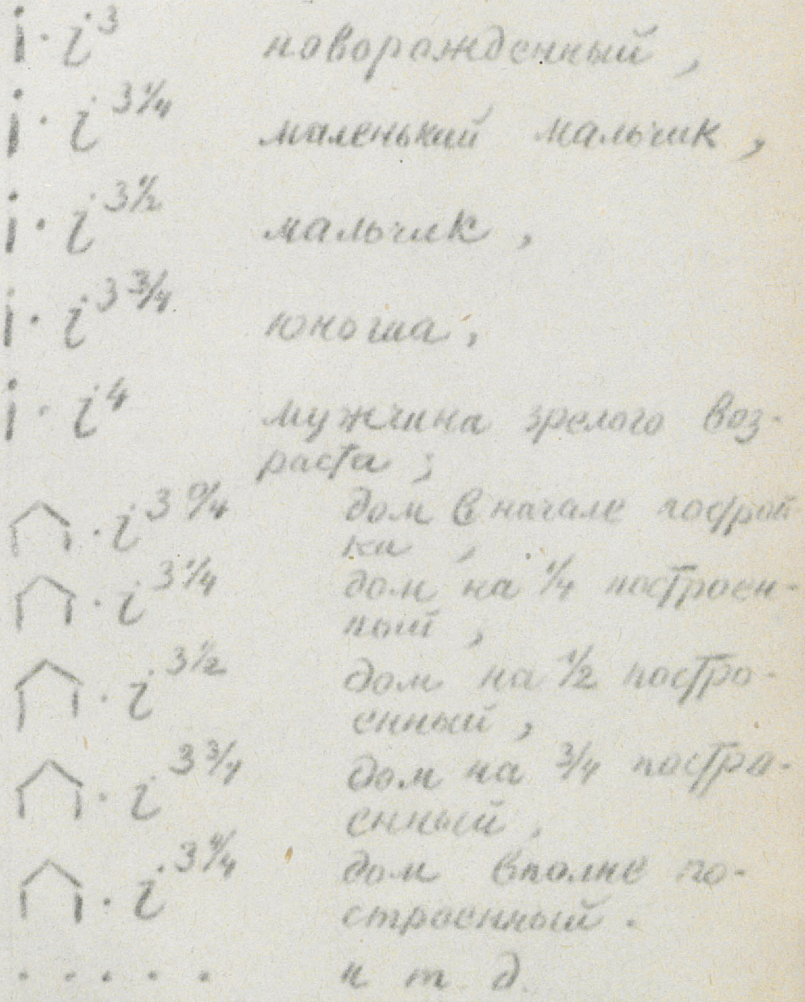 i · i³ новорожденный,
i · i³ ¼ маленький мальчик,
i · i³ ½ мальчик,
i · i³ ¾ юноша,
i · i⁴ мужчина зрелого воз-
раста;
· i³ 0/4 дом в начале построй
ки,
· i³ ¼ дом на ¼ построен-
ный,
· i³ ½ дом на ½ постро-
енный,
· i³ ¾ дом на ¾ постро-
енный,
· i³ 4/4 дом вполне по-
строенный.
. . . . . и т. д.